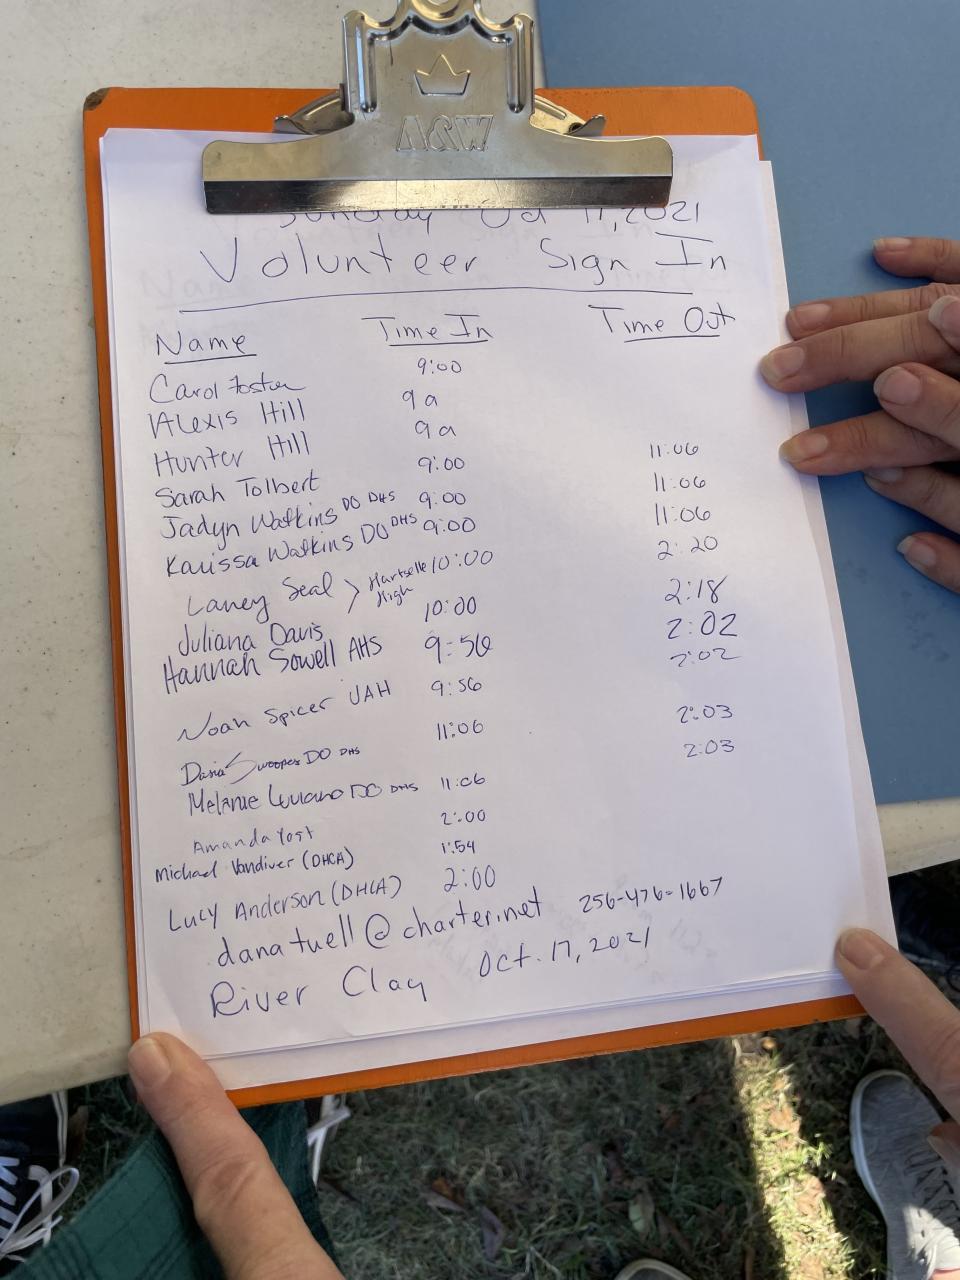 A&W
Sunday Oct 17, 2021
Volunteer Sign In
Name Time In Time Out
Carol Foster 9:00
Alexis Hill 9a
Hunter Hill 9a
Sarah Tolbert 9:00 11:06
Jadyn Watkins DO DHS 9:00 11:06
Karissa Watkins DO DHS 9:00 11:06
Laney Seal > Hartselle High 10:00 2:20
Juliana Davis 10:00 2:18
Hannah Sowell AHS 9:56 2:02
Noah Spicer UAH 9:56 2:02
Swoopes DO DHS 11:06 2:03
Melanie Luviano DO DHS 11:06 2:03
Amanda Yost 2:00
Michael Vandiver (DHCA) 1:54
Lucy Anderson (DHCA) 2:00
danatuell@charter.net 256-476-1667
River Clay Oct. 17, 2021